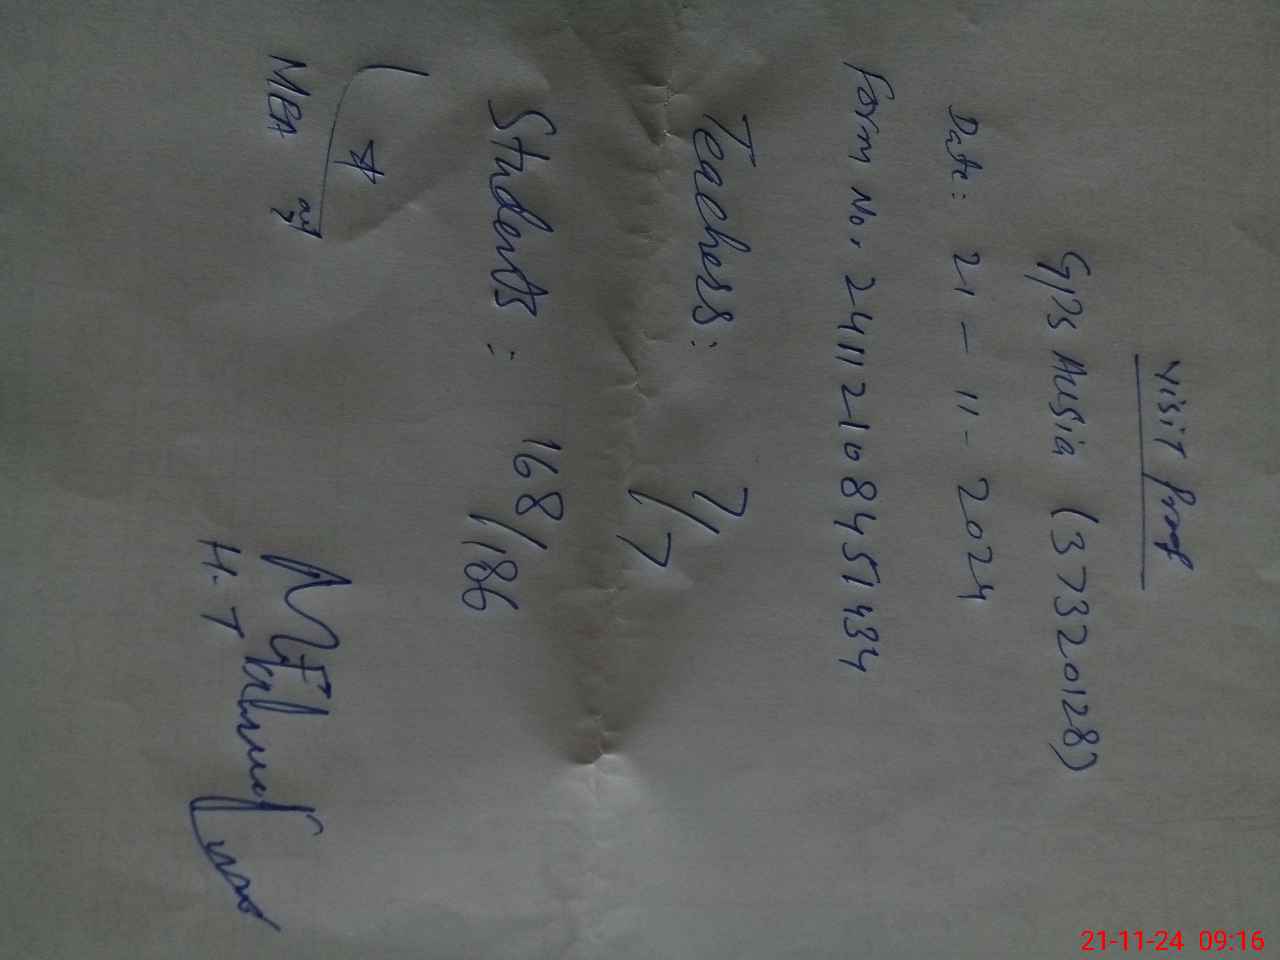 Visit Proof
GPS Ausia (37320128)
Date: 21-11-2024
Form No. 24112108451434
Teachers: 7/7
Students: 168/186
MEA
H.T
21-11-24 09:16